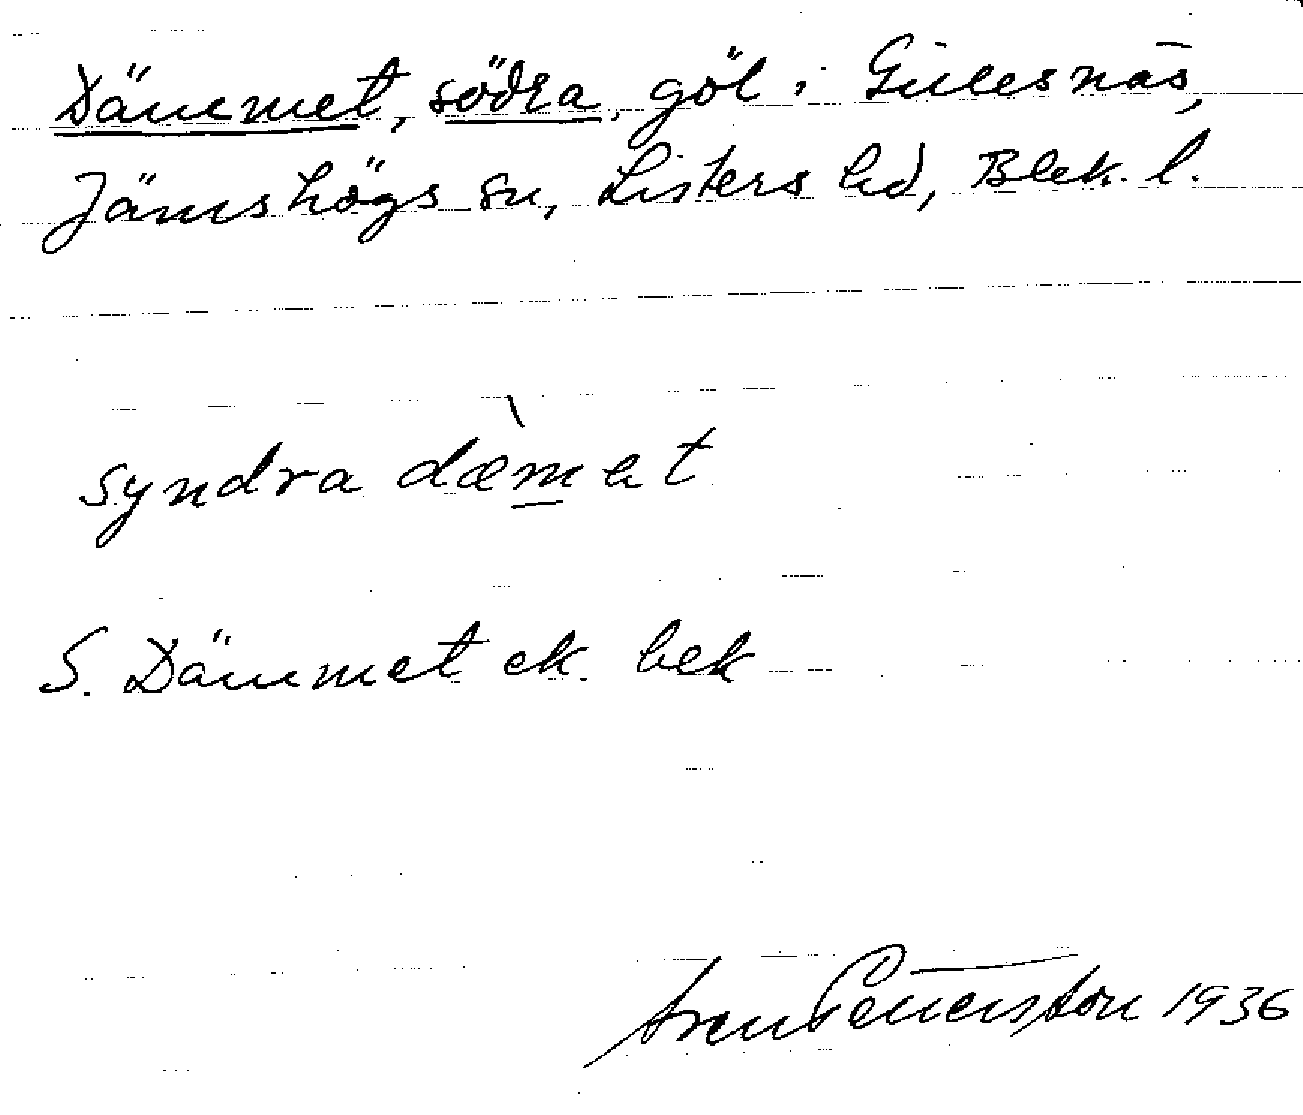 Dämmet, södra, göl i Gillesnäs,
Jämshögs sn, Listers hd, Blek. l.
syndra dæ̀m̲et
S. Dämmet ek. bek
Sven Petterson 1936